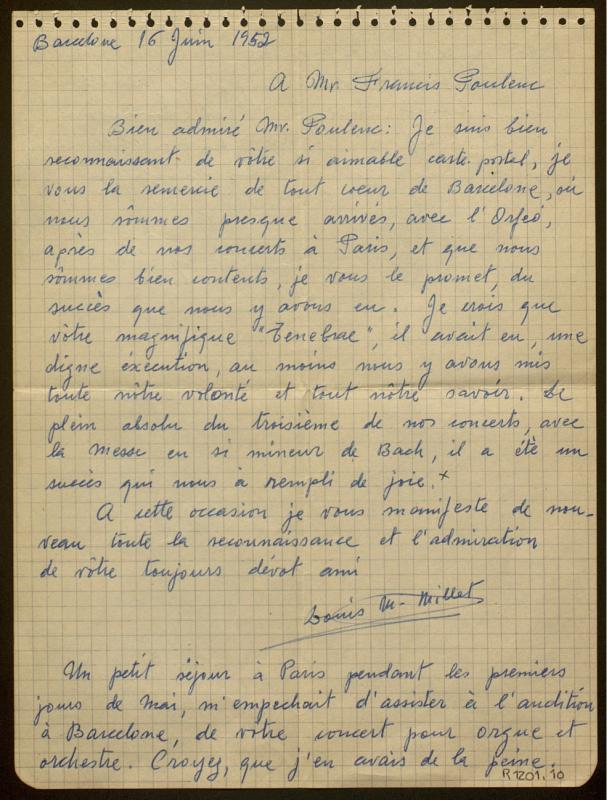 Barcelone 16 Juin 1952
A Mr. Francis Poulenc
Bien admiré Mr. Poulenc: Je suis bien
reconnaissant de vôtre si aimable carte postal, je
vous la remercie de tout coeur de Barcelone, où
nous sômmes presque arrivés, avec l'Orfeó,
après de nos concerts à Paris, et que nous
sômmes bien contents, je vous le promet, du
succès que nous y avons eu. Je crois que
vôtre magnifique "Tenebrae", il avait eu, une
digne éxecution, au moins nous y avons mis
toute nôtre volonté et tout nôtre savoir. Le
plein absolu du troisième de nos concerts, avec
la Messe en si mineur de Bach, il a été un
succès qui nous à rempli de joie. x
A cette occasion je vous manifeste de nou-
veau toute la reconnaissance et l'admiration
de vôtre toujours dévot ami
Louis M. Millet
Un petit séjour à Paris pendant les premiers
jours de Mai, m'empechait d'assister à l'audition
à Barcelone, de vôtre concert pour orgue et
orchestre. Croyez, que j'en avais de la peine.
R 1201.10